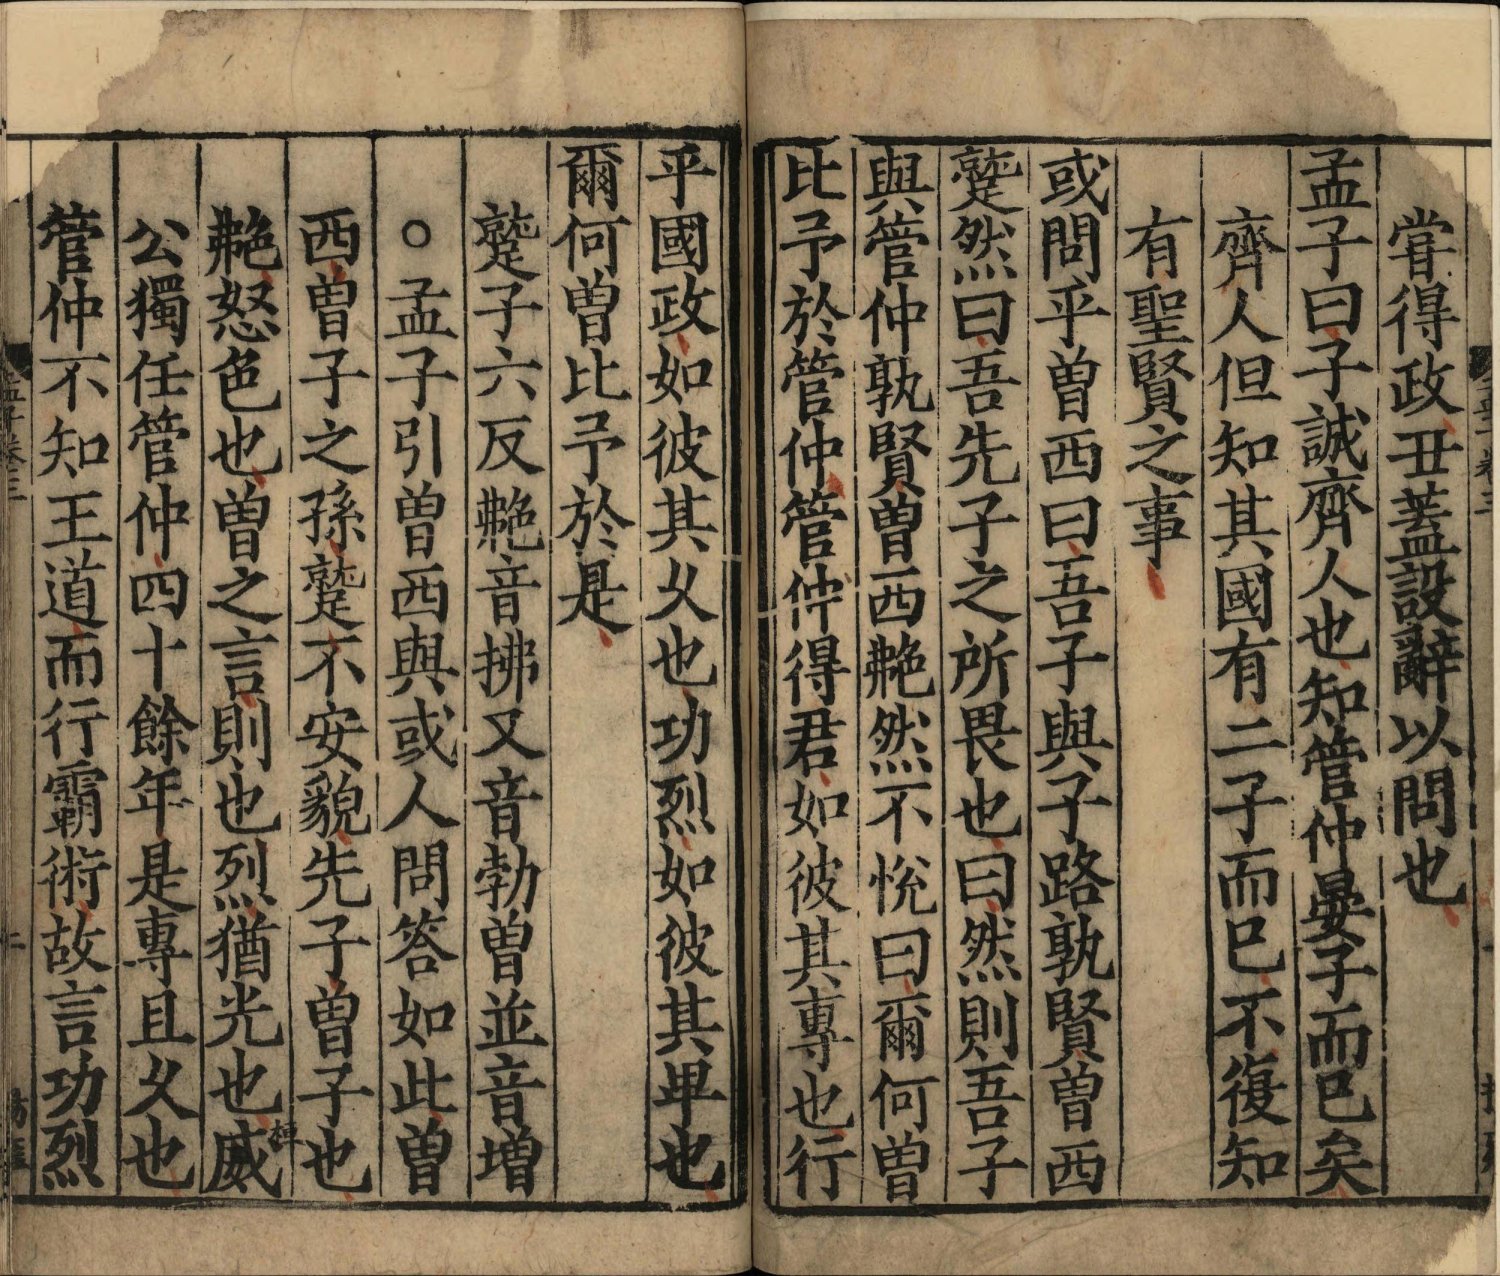 甞得政丑蓋設辭以問也
孟子曰子誠齊人也知管仲晏子而已矣
齊人但知其國有二子而已不復知
有聖賢之事
或問乎曽西曰吾子與子路孰賢曽西
蹵然曰吾先子之所畏也曰然則吾子
與管仲孰賢曽西艴然不恱曰爾何曽
比予於管仲管仲得君如彼其專也行
乎國政如彼其乆也功烈如彼其卑也
爾何曽比予於是
蹵子六反艴音拂又音勃曽並音增
○孟子引曽西與或人問答如此曽
西曽子之孫蹵不安貌先子曽子也
艴怒色也曽之言則也烈猶光也威
公獨任管仲四十餘年是專且乆也
管仲不知王道而行霸術故言功烈
孟子卷三
二
桓